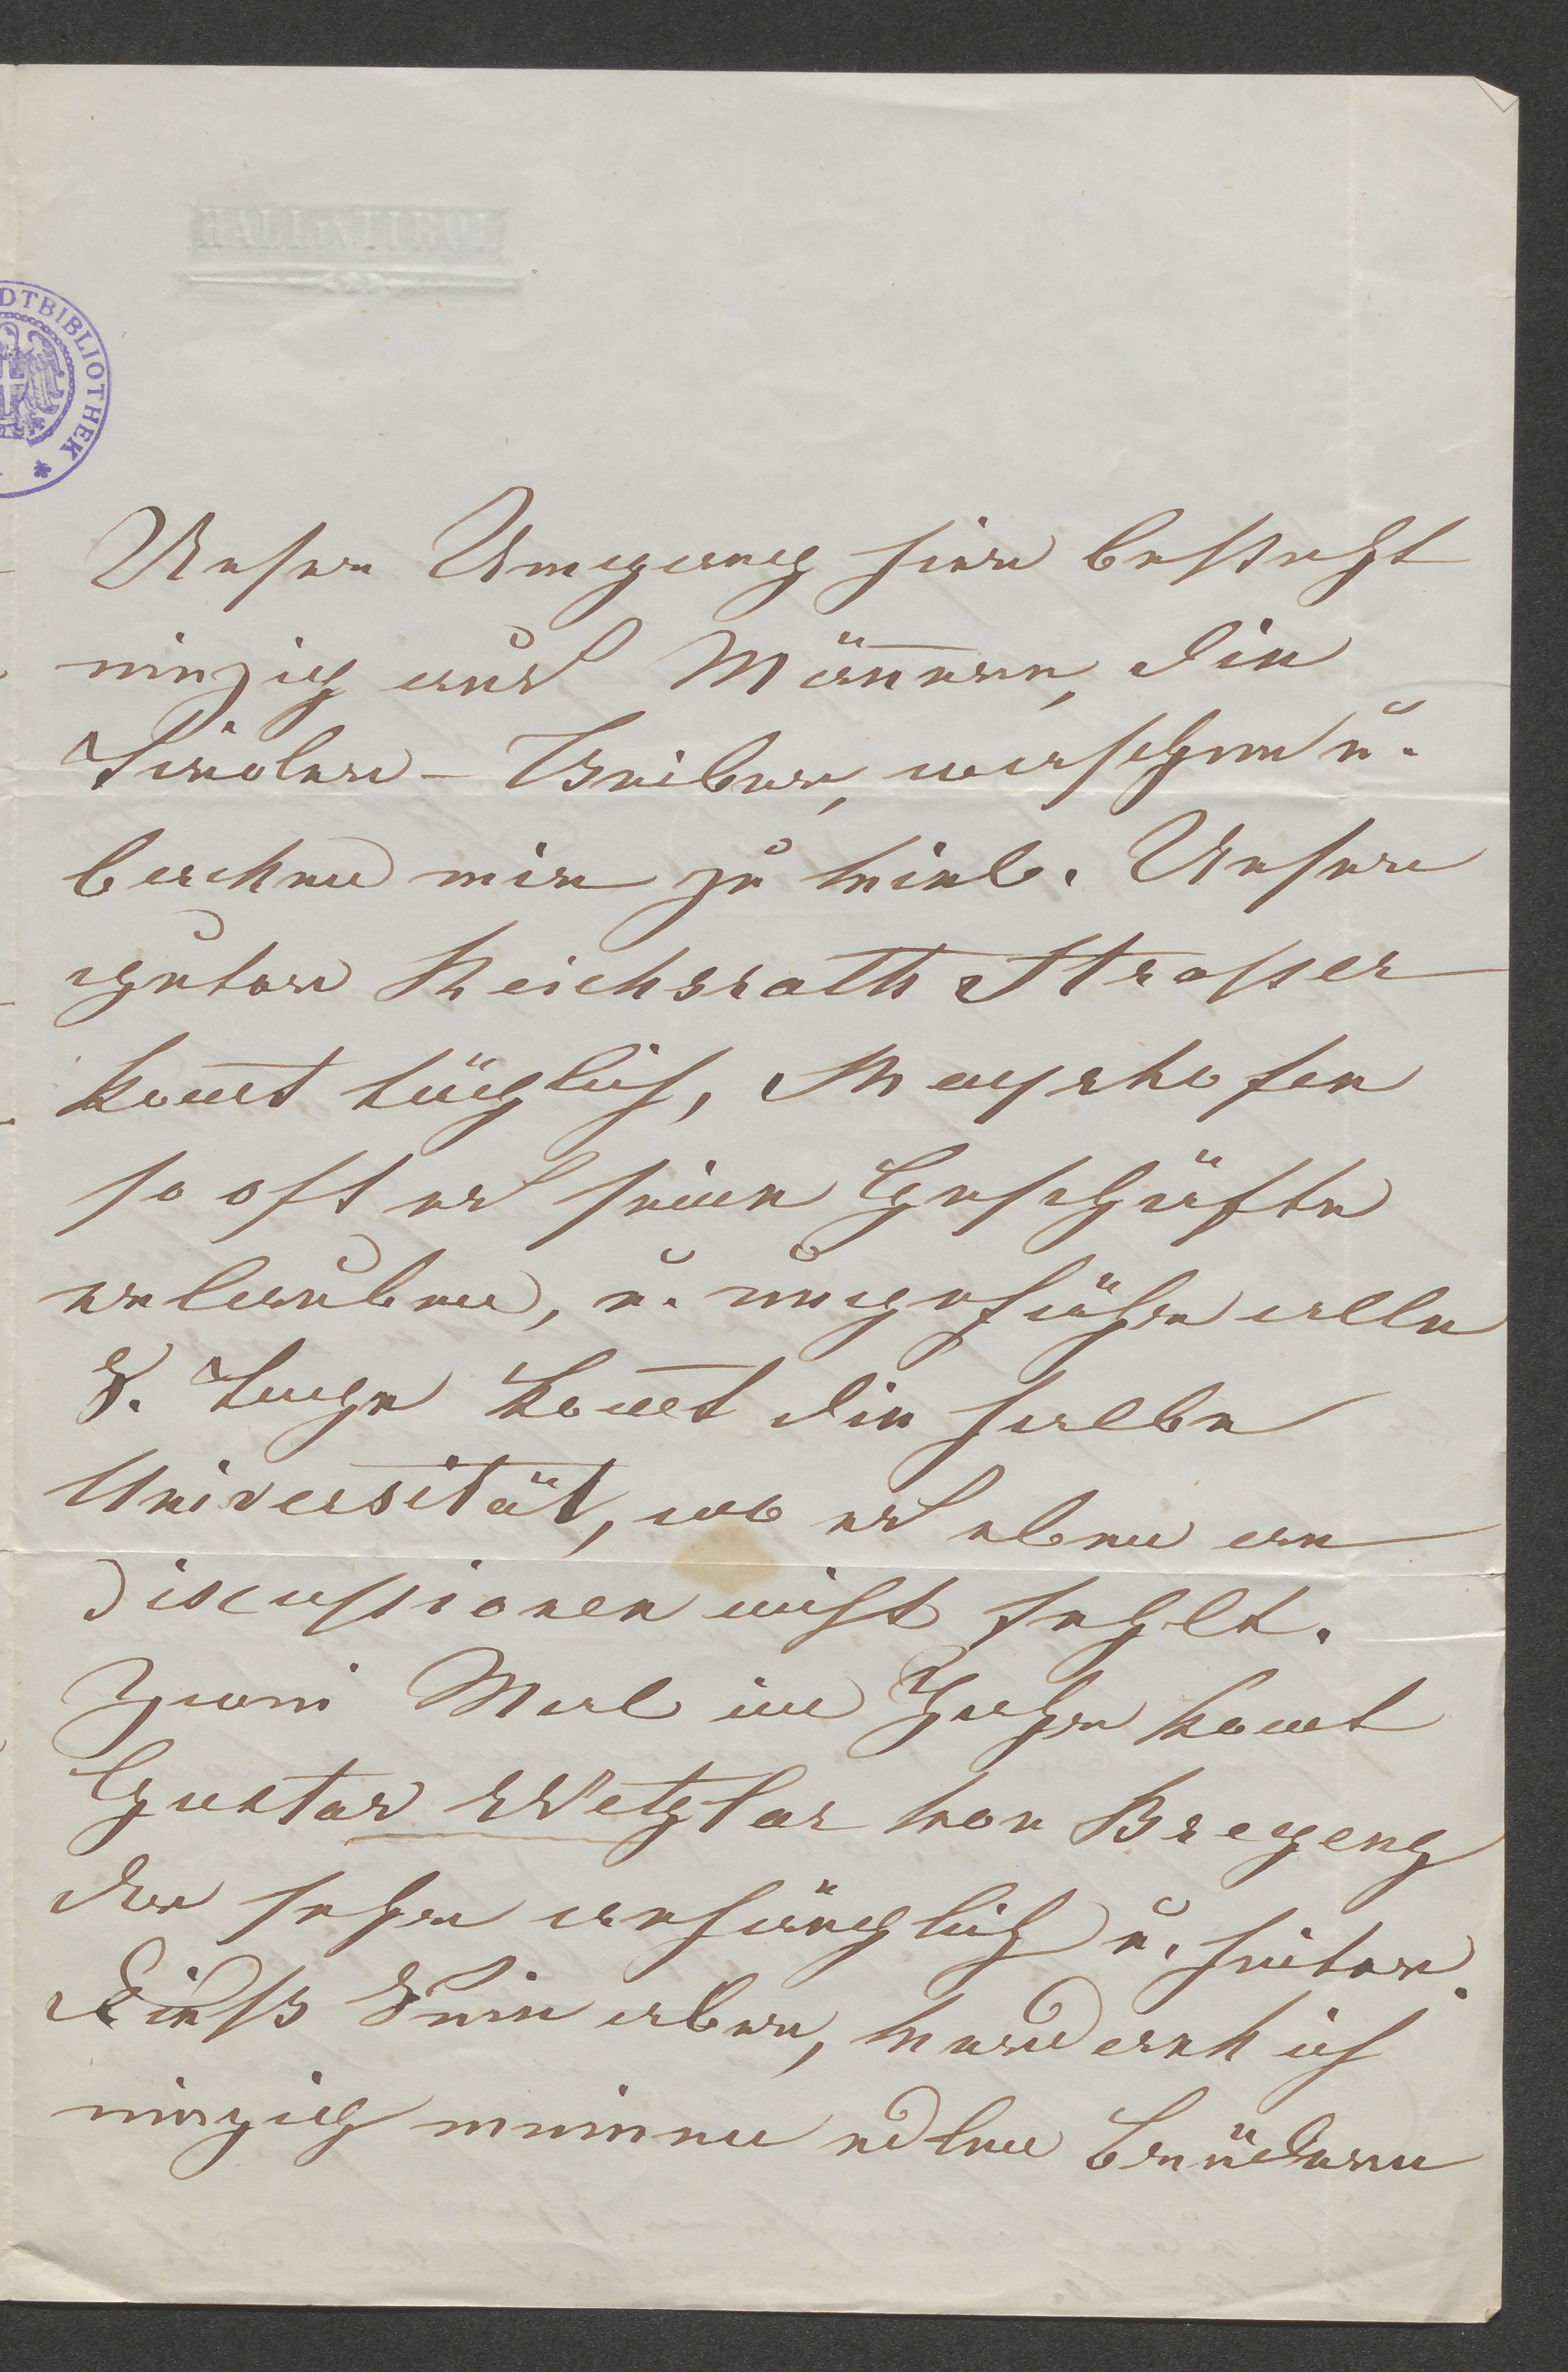 HALL IN TIROL
DTBIBLIOTHEK *
Unser Umgang hier besteht
einzig aus Männern, die
Tiroler-Weiber, waschen u.
backen mir zu viel. Unser
guter Reichsrath Strasser
kom̅t täglich, Mayrhofer
so oft es seine Geschäfte
erlauben, u. ungefähr alle
8. Tage kom̅t die halbe
Universität, wo es eben an
Discussionen nicht fehlt.
Zwei Mal im Jahr komt
Gustav Wetzlar von Bregenz
der sehr anhänglich u. heiter.
Dieß Sein aber, verdank ich
einzig meinem edlen Brudern